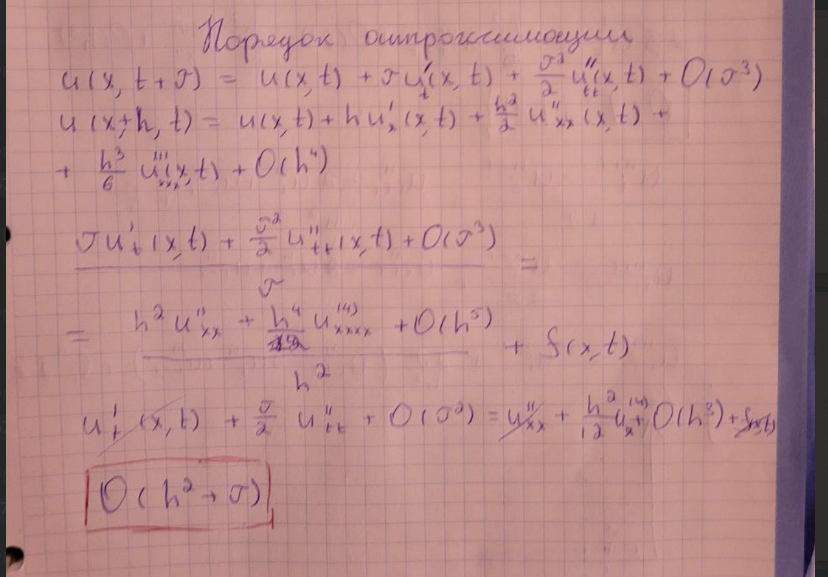 Порядок аппроксимации
u(x, t + τ) = u(x, t) + τu'ₜ(x, t) + τ²/2 u''ₜₜ(x, t) + O(τ³)
u(x+h, t) = u(x, t) + hu'ₓ(x, t) + h²/2 u''ₓₓ(x, t) +
+ h³/6 u'''ₓₓₓ(x, t) + O(h⁴)
τu'ₜ(x, t) + τ²/2 u''ₜₜ(x, t) + O(τ³) =
τ
= h²u''ₓₓ + h⁴/12 u⁽⁴⁾ₓₓₓₓ + O(h⁵) + f(x, t)
h²
u'ₜ(x, t) + τ/2 u''ₜₜ + O(τ²) = u''ₓₓ + h²/12 u⁽⁴⁾ₓ O(h³) + f(x, t)
O(h² + τ)